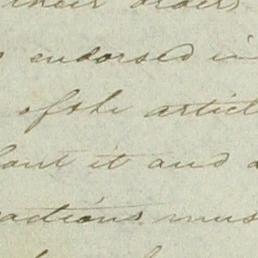 their orders
endorsed in
of the articl
hant it and
actions mus